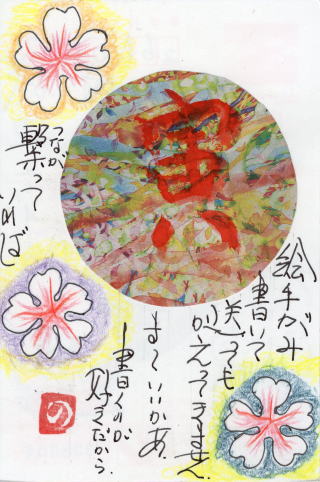 寅
絵手がみ
書いて
送っても
かえってきません。
ま〜いいかあ。
書くのが
好きだから。
つなが
繋って
いれば
の